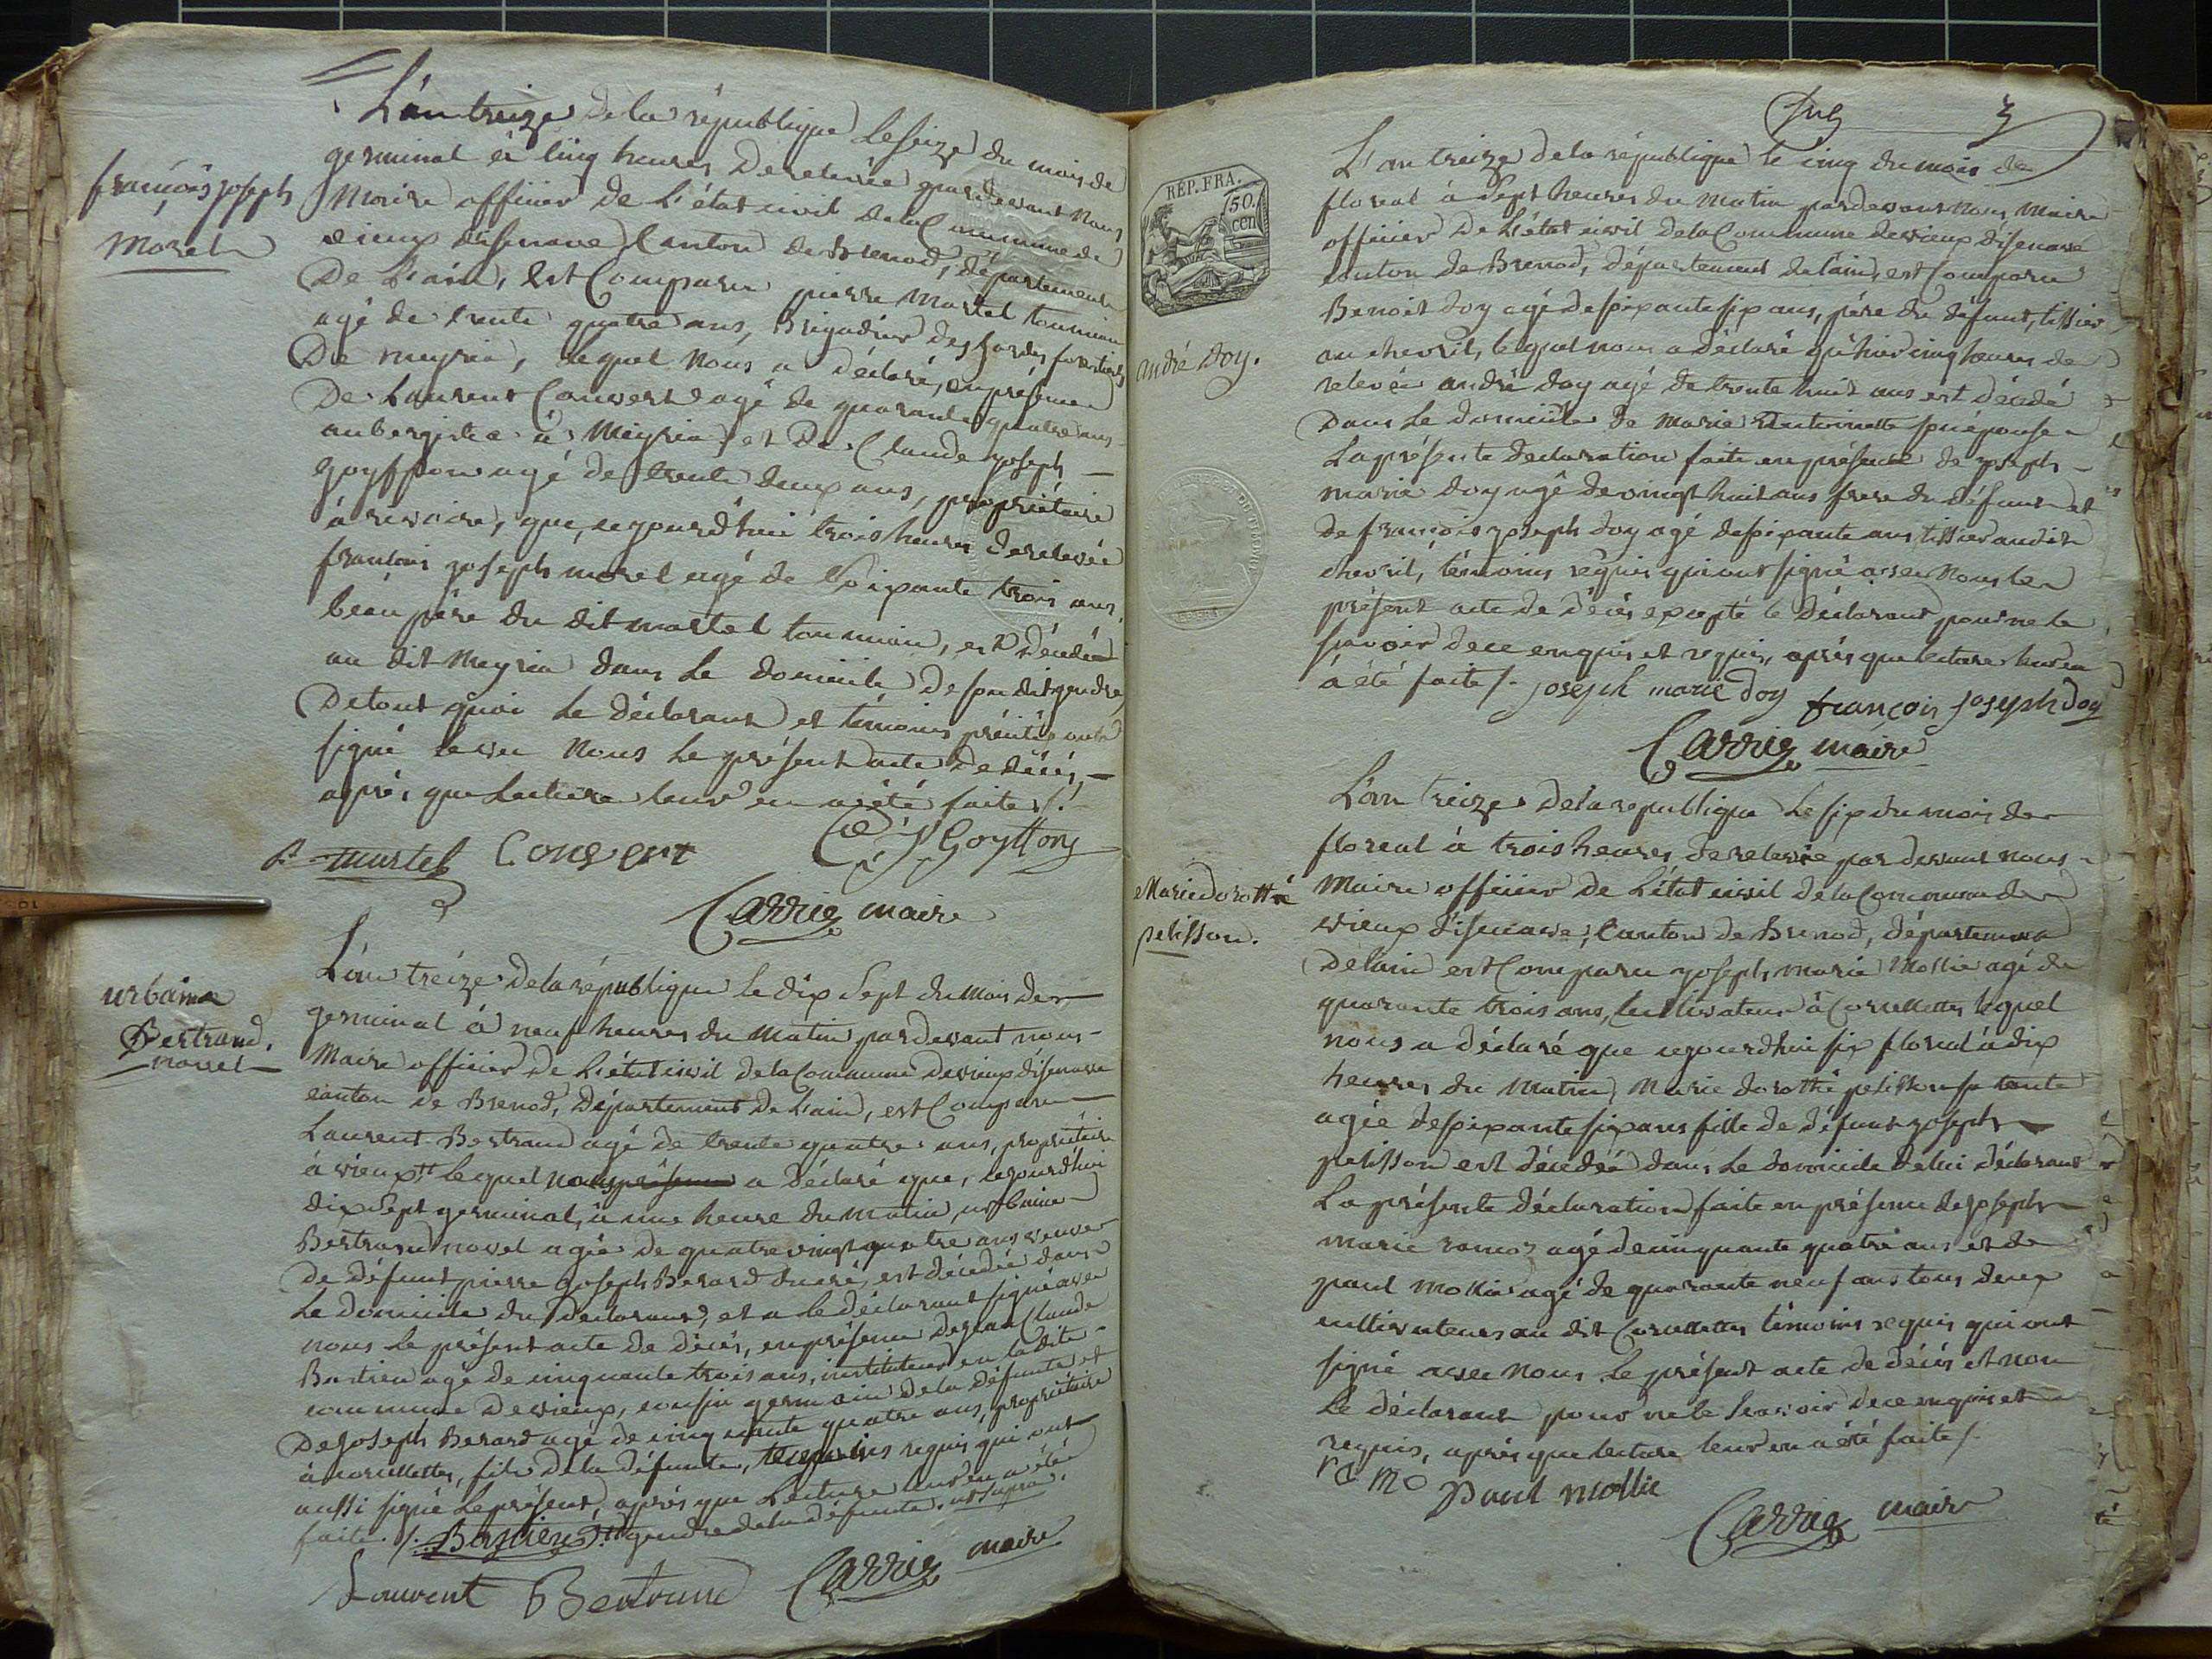 L'an treize de la république le seize du mois de
germinal à cinq heures de relevée pardevant nous
françois joseph
morel
Maire officier de l'état civil de la Commune de
vieux disenave Canton de Brenod, département
De L'ain, est Comparu pierre martel tournian
agé de trente quatre ans, Brigadier des gardes forestiers
De meyria, lequel nous a déclaré, en présence
De Laurent Convert agé de quarante quatre ans
aubergiste à Meyria et De Claude joseph
goyffon agé de trente deux ans, propriétaire
à revoire, que, cejourd'hui trois heures de relevée
françois joseph morel agé de soixante trois ans,
beau père du dit martel tournian, est décédé
au dit Meyria dans le domicile de son dit gendre,
De tout quoi le déclarant et témoins précités ont
signé avec nous le présent acte de décès,
après que lecture leur en a été faite /.
P martel Convert C J Goyffon
Carrier maire
urbaine
Bertrand
novel
L'an treize de la république le dix sept du mois de
germinal à neuf heures du matin pardevant nous
Maire officier de L'état civil de la Commune de vieux disenave
canton de Brenod, Département De L'ain, est Comparu
Laurent Bertrand agé de trente quatre ans, propriétaire
à vieux lequel nous a déclaré que, cejourd'hui
dix sept germinal, à une heure du matin, urbaine
Bertrand novel agée de quatre vingt quatre ans veuve
de défunt pierre joseph Berard est décédée dans
Le domicile du Déclarant, et a le déclarant signé avec
nous le présent acte de décès, en présence de jean Claude
Bastien agé de cinquante trois ans, instituteur en la dite
commune de vieux, cousin germain de la défunte et
De joseph Berard agé de cinquante quatre ans, propriétaire
à corcellettes, fils de la défunte, témoins requis qui ont
aussi signé le présent, après que Lecture leur en a été
faite. /. Bastien gendre de la défunte. ut supra.
Laurent Bertrand Carrier maire
3
REP. FRA.
50.
cen
andré doy.
L'an treize de la république le cinq du mois de
floreal à sept heures du matin pardevant nous Maire
officier De L'état civil de la Commune de vieux disenave
canton de Brenod, département de l'ain, est Comparu
Benoit doy agé de soixante six ans, père du défunt, tissier
au chevril, lequel nous a déclaré qu'hier cinq heures de
relevée andré doy agé de trente huit ans est décédé
Dans le domicile de Marie Antoinette son épouse
La présente declaration faite en présence de joseph
marie doy agé de vingt huit ans frere du défunt et
de françois joseph doy agé de soixante ans tissier audit
chevril, témoins requis qui ont signé avec nous le
présent acte de décès excepté le déclarant pour ne le
savoir de ce enquis et requis, après que lecture leur en
a été faite /. joseph marie doy françois joseph doy
Carrier maire
Marie dorothé
pelisson.
L'an treize De la republique Le six du mois de
floreal à trois heures de relevée par devant nous
Maire officier de L'état civil de la Commune de
vieux d'isenave, Canton de Brenod, département
De l'ain est Comparu joseph marie Mollie agé de
quarante trois ans, Cultivateur à Corcellettes lequel
nous a déclaré que cejourd'hui six floreal à dix
heures du matin, Marie dorothé pelisson sa tante
agée de soixante six ans fille de défunt joseph
pelisson est décédée dans le domicile de lui déclarant
La présente déclaration faite en présence de joseph
marie ramoz agé de cinquante quatre ans et de
paul mollie agé de quarante neuf ans tous deux
cultivateurs au dit Corcellettes témoins requis qui ont
signé avec nous le présent acte de décès et non
le déclarant pour ne le scavoir de ce enquis et
requis, après que lecture leur en a été faite /.
ra mo Paul mollie
Carrier maire